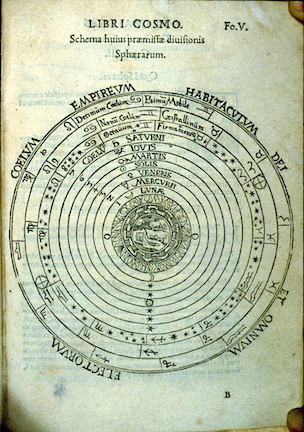 LIBRI COSMO. Fo. V.
Schema huius præmissæ diuisionis
Sphærarum.
COELVM EMPIREVM HABITACVLVM DEI
ET OMNIVM ELECTORVM
Decimum Coelum Primũ Mobile
Nonũ Coelũ Cristallinũm
Octauum Firmamentũ
COELV̄ SATVRNI
IOVIS
MARTIS
SOLIS
VENERIS
MERCVRII
LVNÆ
B